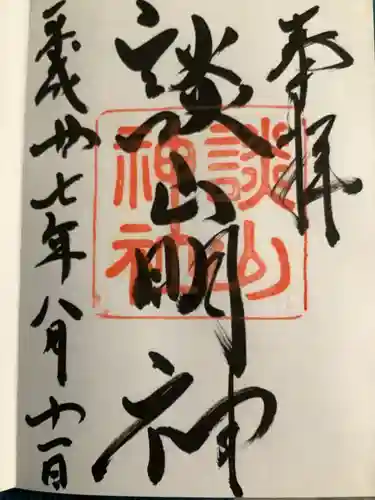 奉拝
談山明神
談山神社
平成廿七年八月十一日